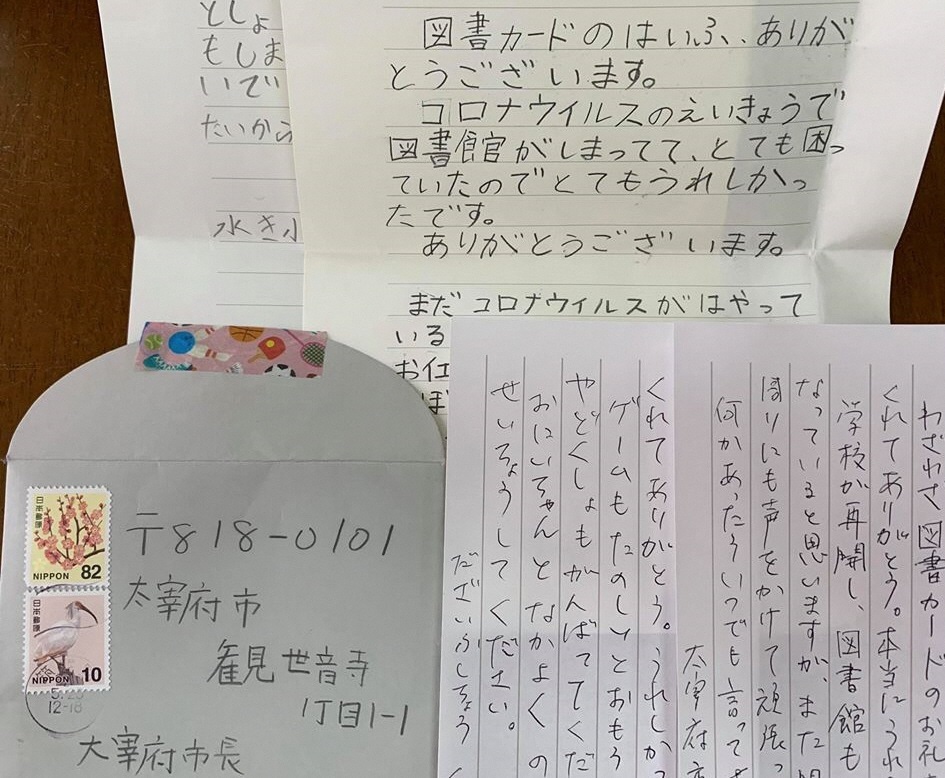 としょ
もしま
いで
たいから
水き小
図書カードのはいふ、ありが
とうございます。
コロナウイルスのえいきょうで
図書館がしまってて、とても困っ
ていたのでとてもうれしかっ
たです。
ありがとうございます。
まだコロナウイルスがはやって
いる
お仕
ぼ
わざわざ図書カードのお礼
くれてありがとう。本当にうれ
学校が再開し、図書館も
なっていると思いますが、また
周りにも声をかけて頑張っ
何かあったらいつでも言って
太宰府市
くれてありがとう。うれしかっ
ゲームもたのしいとおもう
やどくしょもがんばってくだ
おにいちゃんとなかよく
せいちょうしてください。
だざいふしちょう
日本郵便
NIPPON 82
日本郵便
NIPPON 10
12-18
〒818-0101
太宰府市
観世音寺
1丁目1-1
太宰府市長